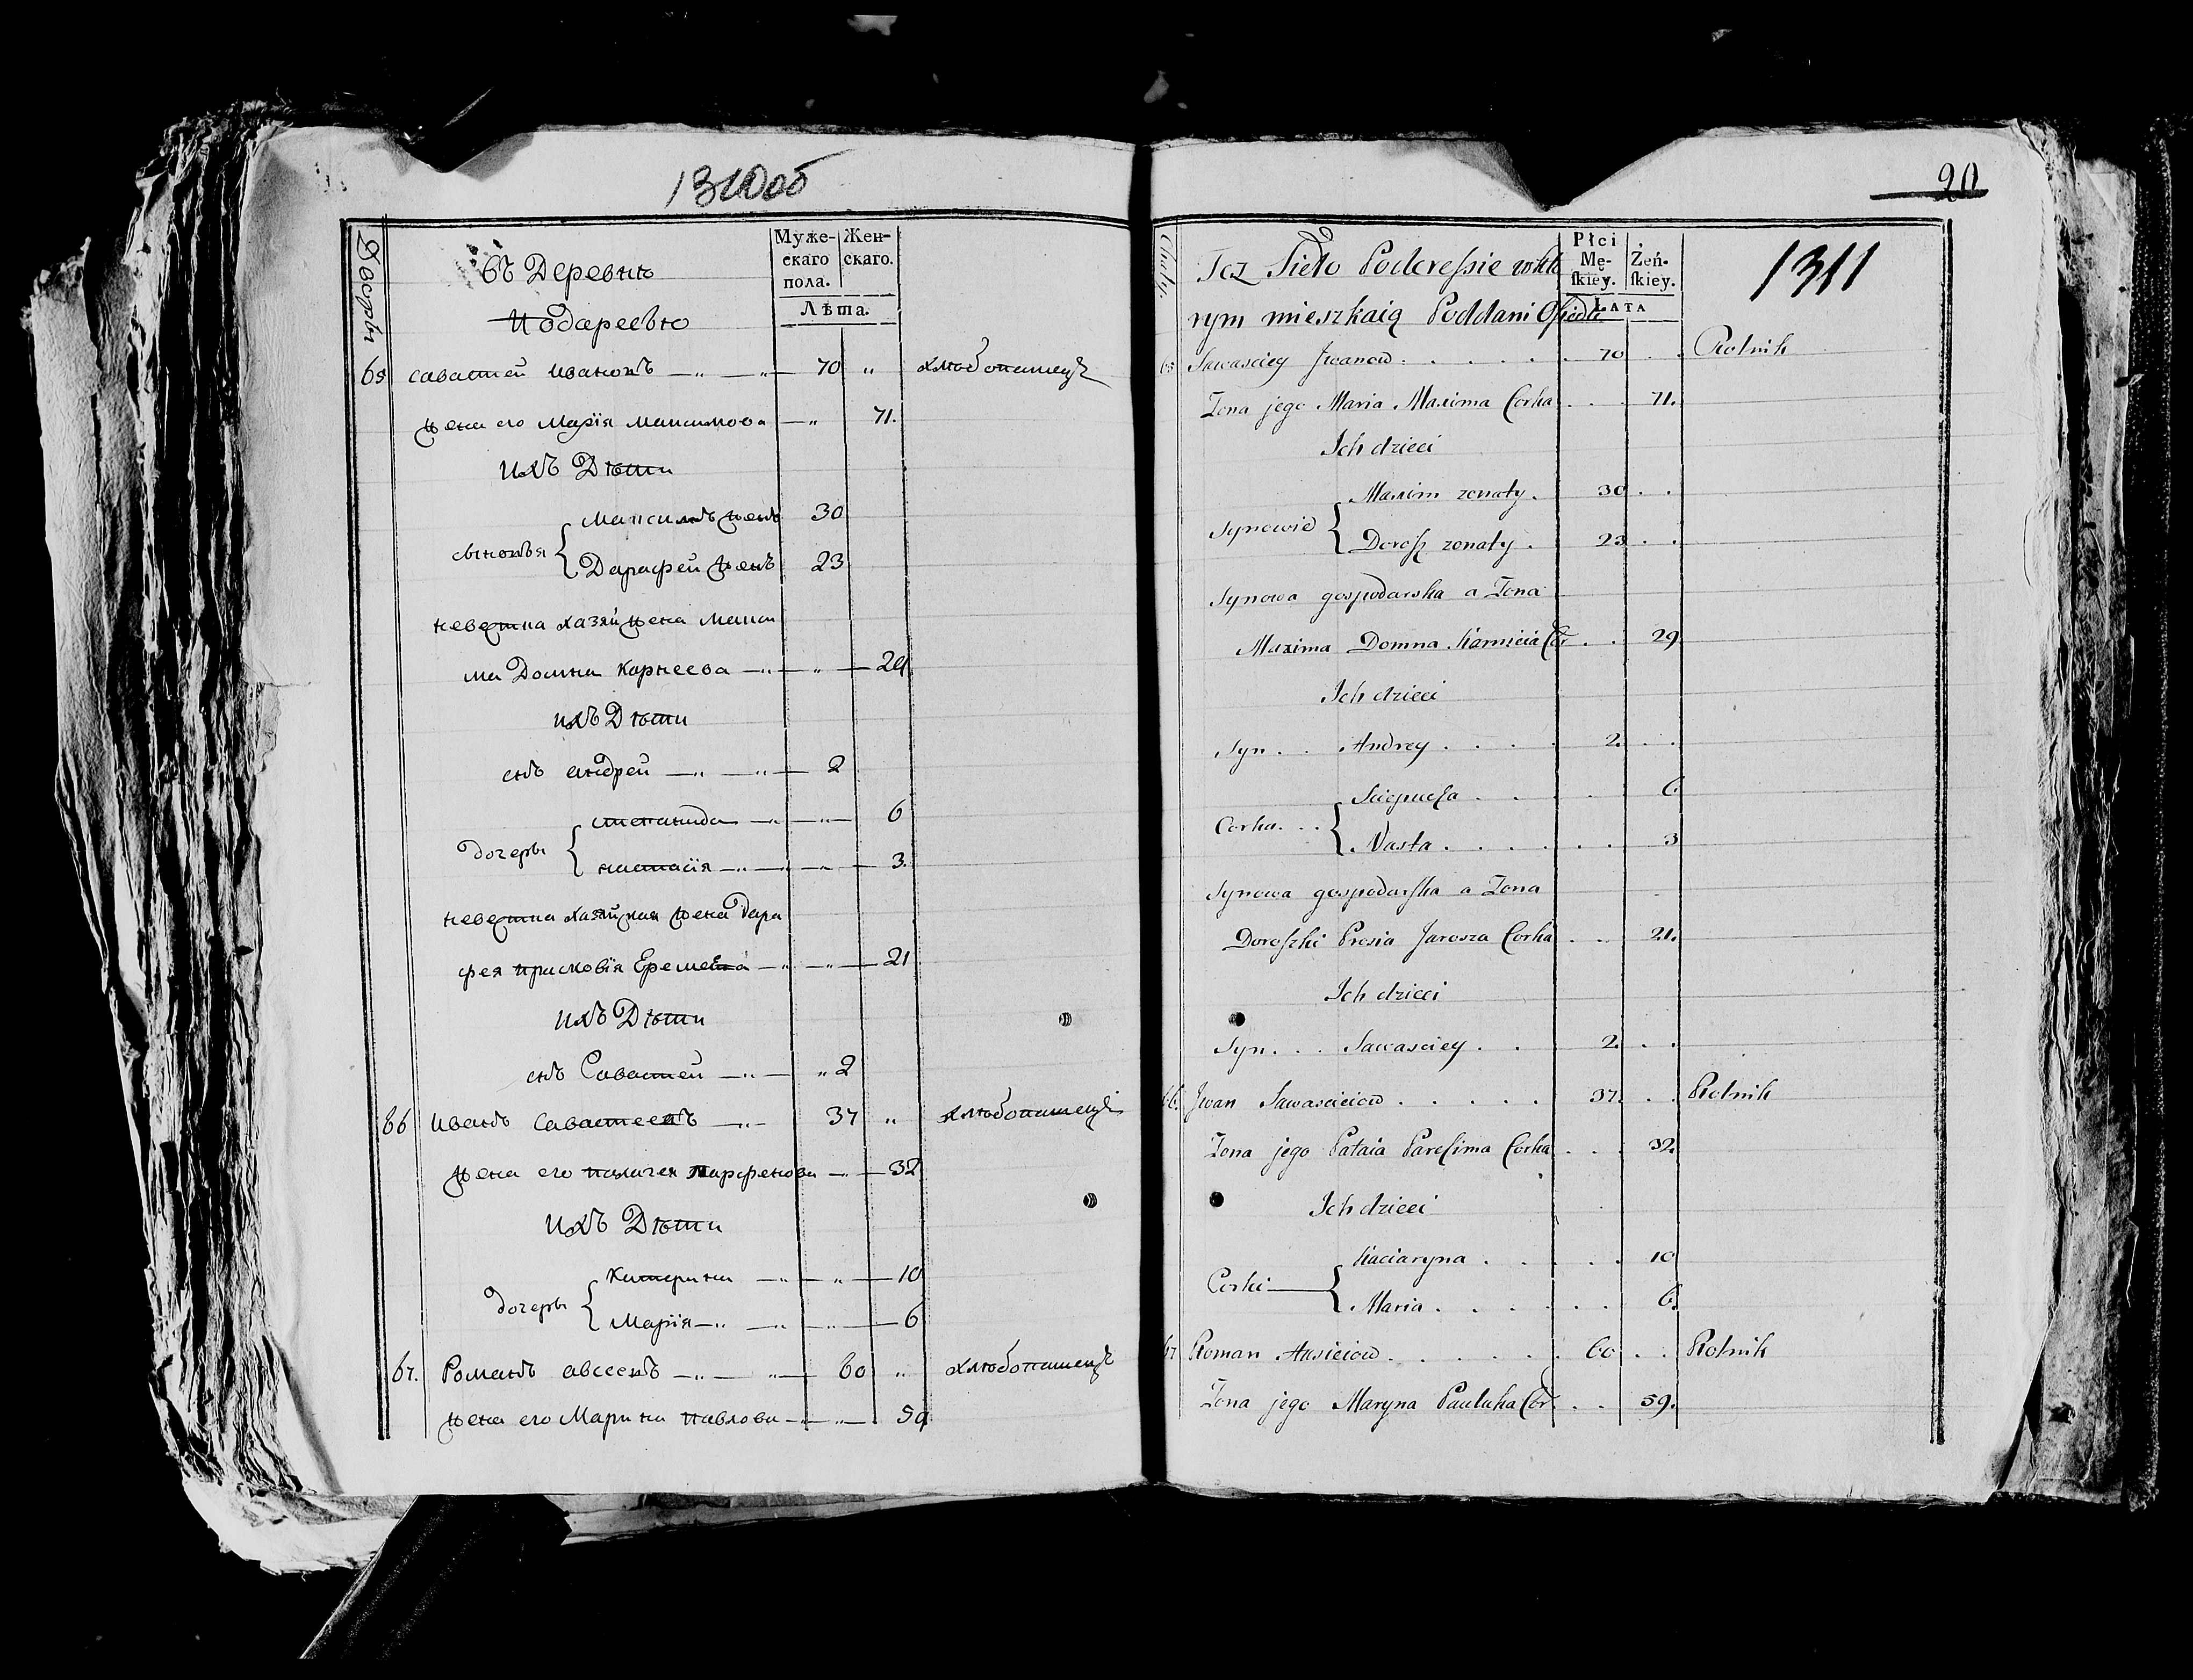 1310об
Дворы
Въ Деревню
Подаревю
Муже-
скаго
пола.
Жен-
скаго.
Лѣта.
65 саваѳей ивановъ 70 " хлѣбопашецъ
жена его Марія максимова " 71.
ихъ Дѣти
сыновья { Максимъ жен 30
Дарафей жен 23
невестка хазяй жена макси
ма Домна Карнеева " 29
ихъ Дѣти
снъ андрей 2
дочеры { степанида 6
настасія 3.
невестка хазяйская жена дара
фея прасковія Еремеева 21
ихъ Дѣти
снъ Савастей " 2
66 иванъ савастеевъ 37 " хлѣбопашецъ
жена его палагея парфенова 32
ихъ Дѣти
дочеры { Катерина 10
Марія 6
67. Романъ авсеевъ 60 " хлѣбопашецъ
жена его Марина павлова 59
20
1311
Też Sieło Podereſsie wktó
rym mieszkaią Poddani Osiedli
Płci
Mę-
ſkiey.
Żeń-
ſkiey.
Lata
65 Sawasciey Jwanow 70 Rolnik
Zona jego Maria Maxima Corka 71.
Ich dzieci
Synowie { Maxim zonaty. 30
Dorosz zonaty. 23
Synowa gospodarska a Zona
Maxima Domna Karnieia Cor 29
Ich dzieci
Syn . . Andrey 2.
Corka. { Sciepuesa 6.
Nasta 3
Synowa gospodarſka a Zona
Doroſzki Prosia Jarosza Corka 21.
Ich dzieci
Syn. . . Sawasciey 2.
66. Jwan Sawasciciow 37. Rolnik
Zona jego Pałaia Pareſima Corka 32.
Ich dzieci
Corki { Kaciaryna 10
Maria 6.
67 Roman Ausieiow 60 Rolnik
Zona jego Maryna Pauluka Cor 59.